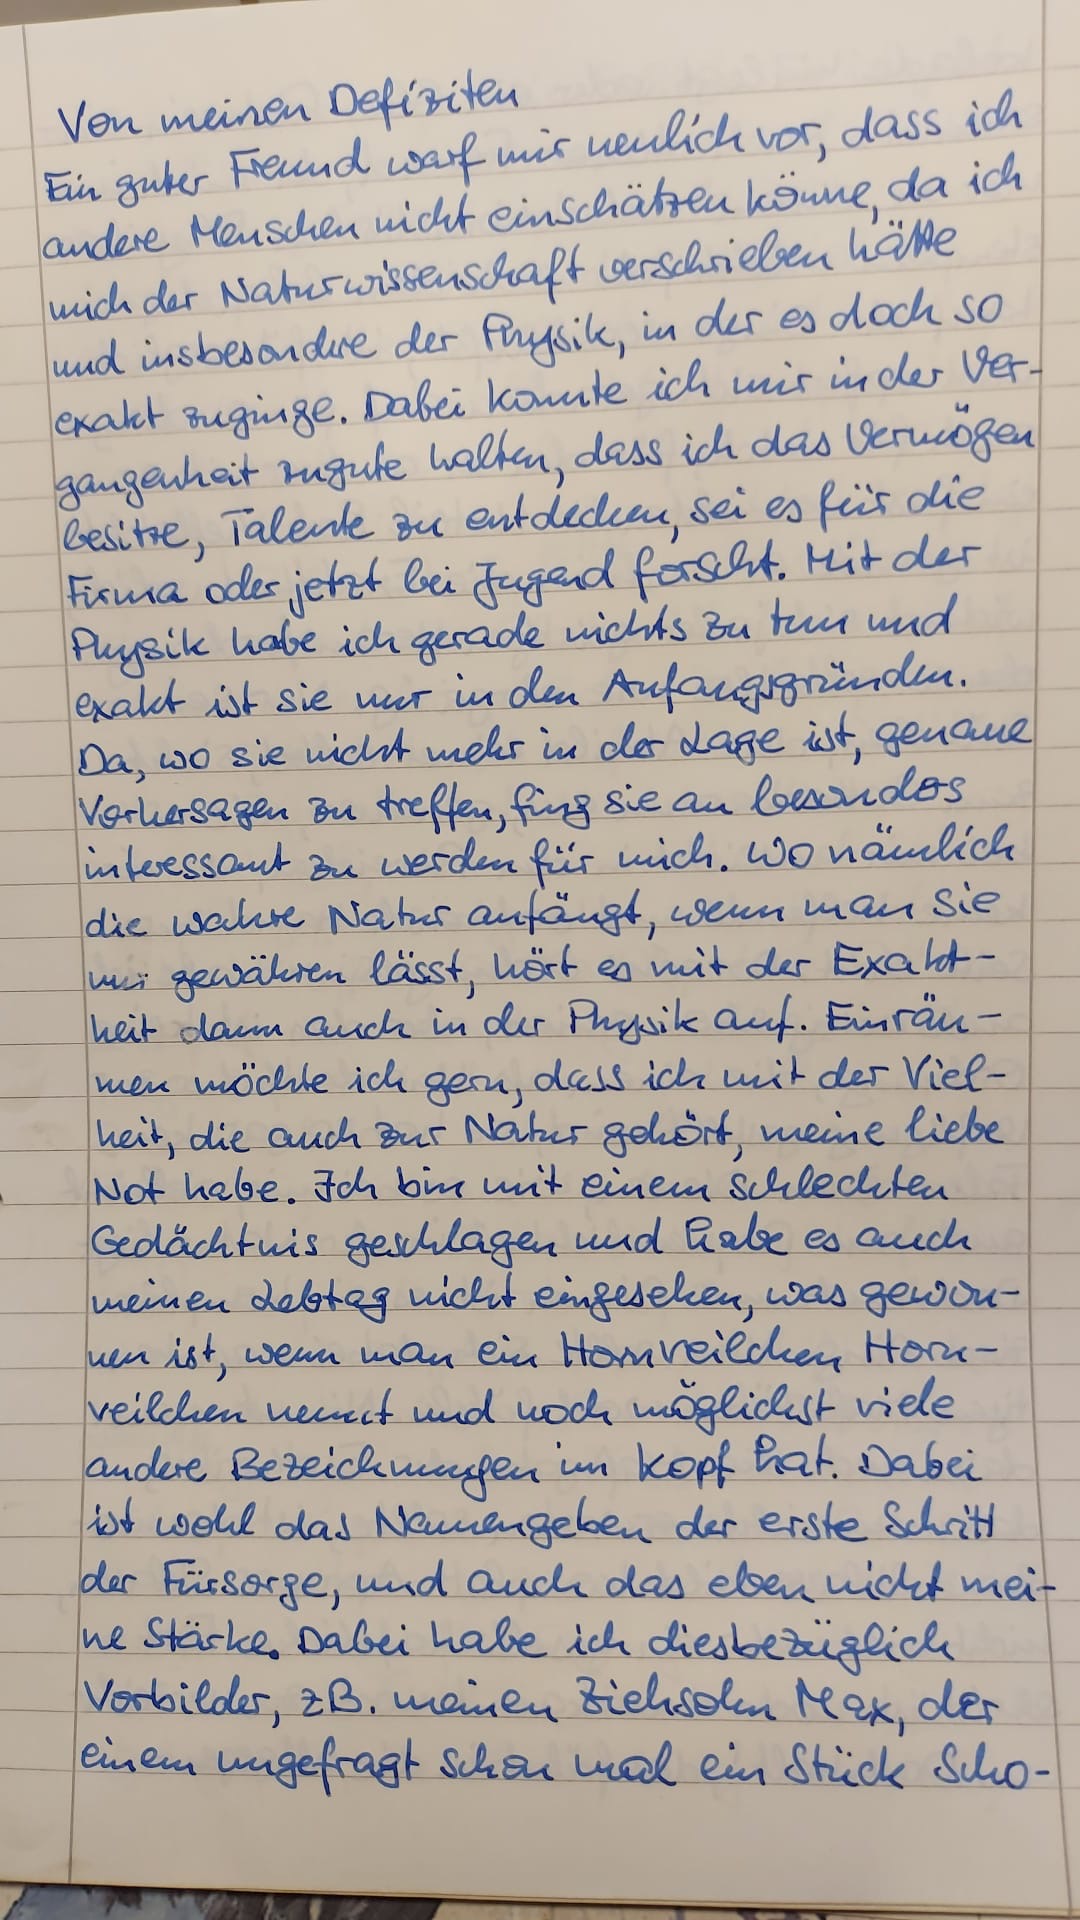 Von meinen Defiziten
Ein guter Freund warf mir neulich vor, dass ich
andere Menschen nicht einschätzen könne, da ich
mich der Naturwissenschaft verschrieben hätte
und insbesondere der Physik, in der es doch so
exakt zuginge. Dabei konnte ich mir in der Ver-
gangenheit zugute halten, dass ich das Vermögen
besitze, Talente zu entdecken, sei es für die
Firma oder jetzt bei Jugend forscht. Mit der
Physik habe ich gerade nichts zu tun und
exakt ist sie nur in den Anfangsgründen.
Da, wo sie nicht mehr in der Lage ist, genaue
Vorhersagen zu treffen, fing sie an besonders
interessant zu werden für mich. Wo nämlich
die wahre Natur anfängt, wenn man sie
nur gewähren lässt, hört es mit der Exakt-
heit dann auch in der Physik auf. Einräu-
men möchte ich gern, dass ich mit der Viel-
heit, die auch zur Natur gehört, meine liebe
Not habe. Ich bin mit einem schlechten
Gedächtnis geschlagen und habe es auch
meinen Lebtag nicht eingesehen, was gewon-
nen ist, wenn man ein Hornveilchen Horn-
veilchen nennt und noch möglichst viele
andere Bezeichnungen im Kopf hat. Dabei
ist wohl das Namengeben der erste Schritt
der Fürsorge, und auch das eben nicht mei-
ne Stärke. Dabei habe ich diesbezüglich
Vorbilder, zB. meinen Ziehsohn Max, der
einem ungefragt schon mal ein Stück Scho-